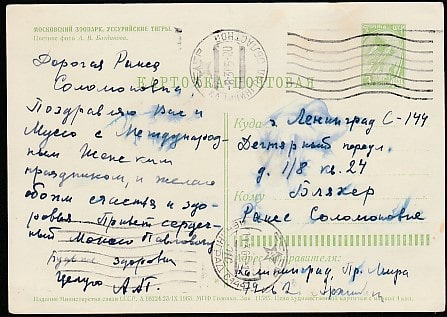 МОСКОВСКИЙ ЗООПАРК. УССУРИЙСКИЕ ТИГРЫ.
Цветное фото А. В.
КАРТОЧКА ПОЧТОВАЯ
Дорогая Раиса
Соломоновна
Поздравляю Вас и
Мусю с Международ-
ным Женским
праздником, и желаю
обоим счастья и здо-
ровья. Привет сердеч-
ный
Будьте здоровы
Целую А.П.
Куда г. Ленинград С-144
Дегтярный переул.
д. 1/8 кв. 24
Кому Бляхер
Раисе Соломоновне
Адрес отправителя:
Калининград, Пр. Мира
Издание Министерства связи СССР.